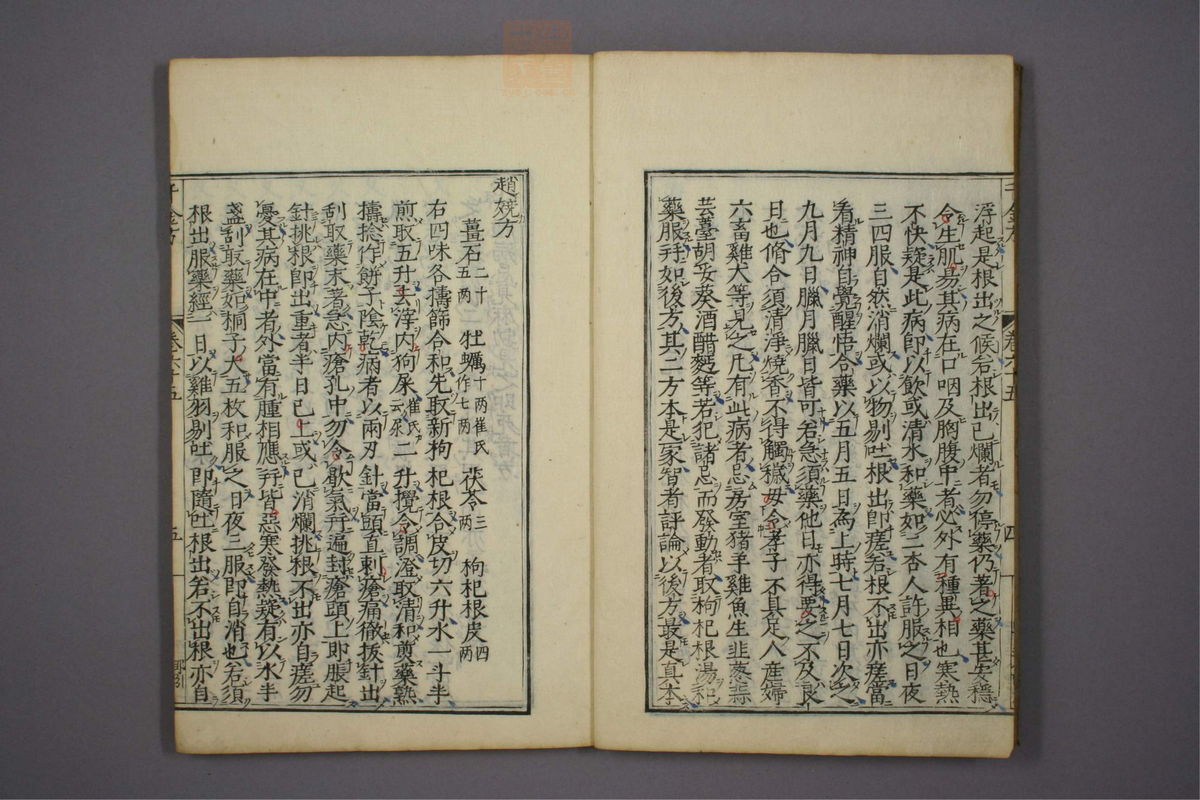 浮起是根出之候若根出已爛者勿停藥仍著之藥甚安穩
令生肌易其病在口咽及胸腹中者必外有種異相也寒熱
不快疑是此病即以飲或清水和藥如二杏人許服之日夜
三四服自然消爛或以物剔吐根出即瘥若根不出亦瘥當
看精神自覺醒悟合藥以五月五日為上時七月七日次之
九月九日臘月臘日皆可若急須藥他日亦得要之不及良
日也脩合須清淨燒香不得觸穢毋令孝子不具足人產婦
六畜雞犬等見之凡有此病者忌房室豬羊雞魚生韭蔥蒜
芸薹胡荽葵酒醋麪等若犯諸忌而發動者取枸杞根湯和
藥服并如後方其二方本是一家智者評論以後方最是真本
千金方
卷六十五
四
趙嬈方
薑石二十五兩 牡蠣十兩崔氏作七兩 茯苓三兩 枸杞根皮四兩
右四味各擣篩合和先取新枸杞根合皮切六升水一斗半
煎取五升去滓內狗屎崔氏云尿二升攪令調澄取清和前藥熟
擣捻作餅子陰乾病者以兩刃針當頭直刺瘡痛徹拔針出
刮取藥末著急內瘡孔中勿令歇氣并遍封瘡頭上即脹起
針挑根即出重者半日已上或已消爛挑根不出亦自瘥勿
憂其病在中者外當有腫相應并皆惡寒發熱疑有以水半
盞刮取藥如桐子大五枚和服之日夜二服即自消也若須
根出服藥經一日以雞羽剔吐即隨吐根出若不出根亦自
千金方
卷六十五
五